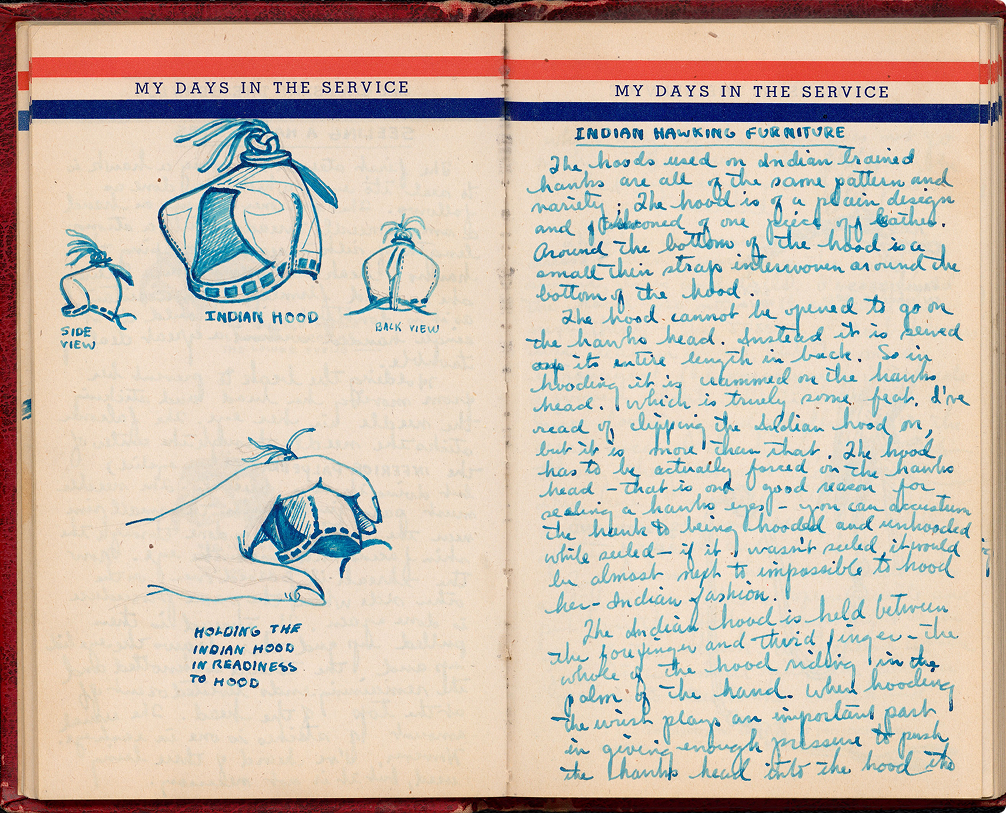 MY DAYS IN THE SERVICE
INDIAN HOOD
SIDE
VIEW
BACK VIEW
HOLDING THE
INDIAN HOOD
IN READINESS
TO HOOD
MY DAYS IN THE SERVICE
INDIAN HAWKING FURNITURE
The hoods used on Indian trained
hawks are all of the same pattern and
variety. The hood is of a plain design
and fashioned of one piece of leather.
Around the bottom of the hood is a
small thin strap interwoven around the
bottom of the hood.
The hood cannot be opened to go on
the hawks head. Instead it is sewed
its entire length in back. So in
hooding it is crammed on the hawks
head. Which is truely some feat. I've
read of slipping the Indian hood on,
but it is more than that. The hood
has to be actually forced on the hawks
head – that is one good reason for
seeling a hawks eyes – you can accustom
the hawk to being hooded and unhooded
while seeled – if it wasn't seeled, it would
be almost next to impossible to hood
her – Indian fashion.
The Indian hood is held between
the forefinger and third finger – the
whole of the hood riding in the
palm of the hand. When hooding
the wrist plays an important part
in giving enough pressure to push
the hawks head into the hood the